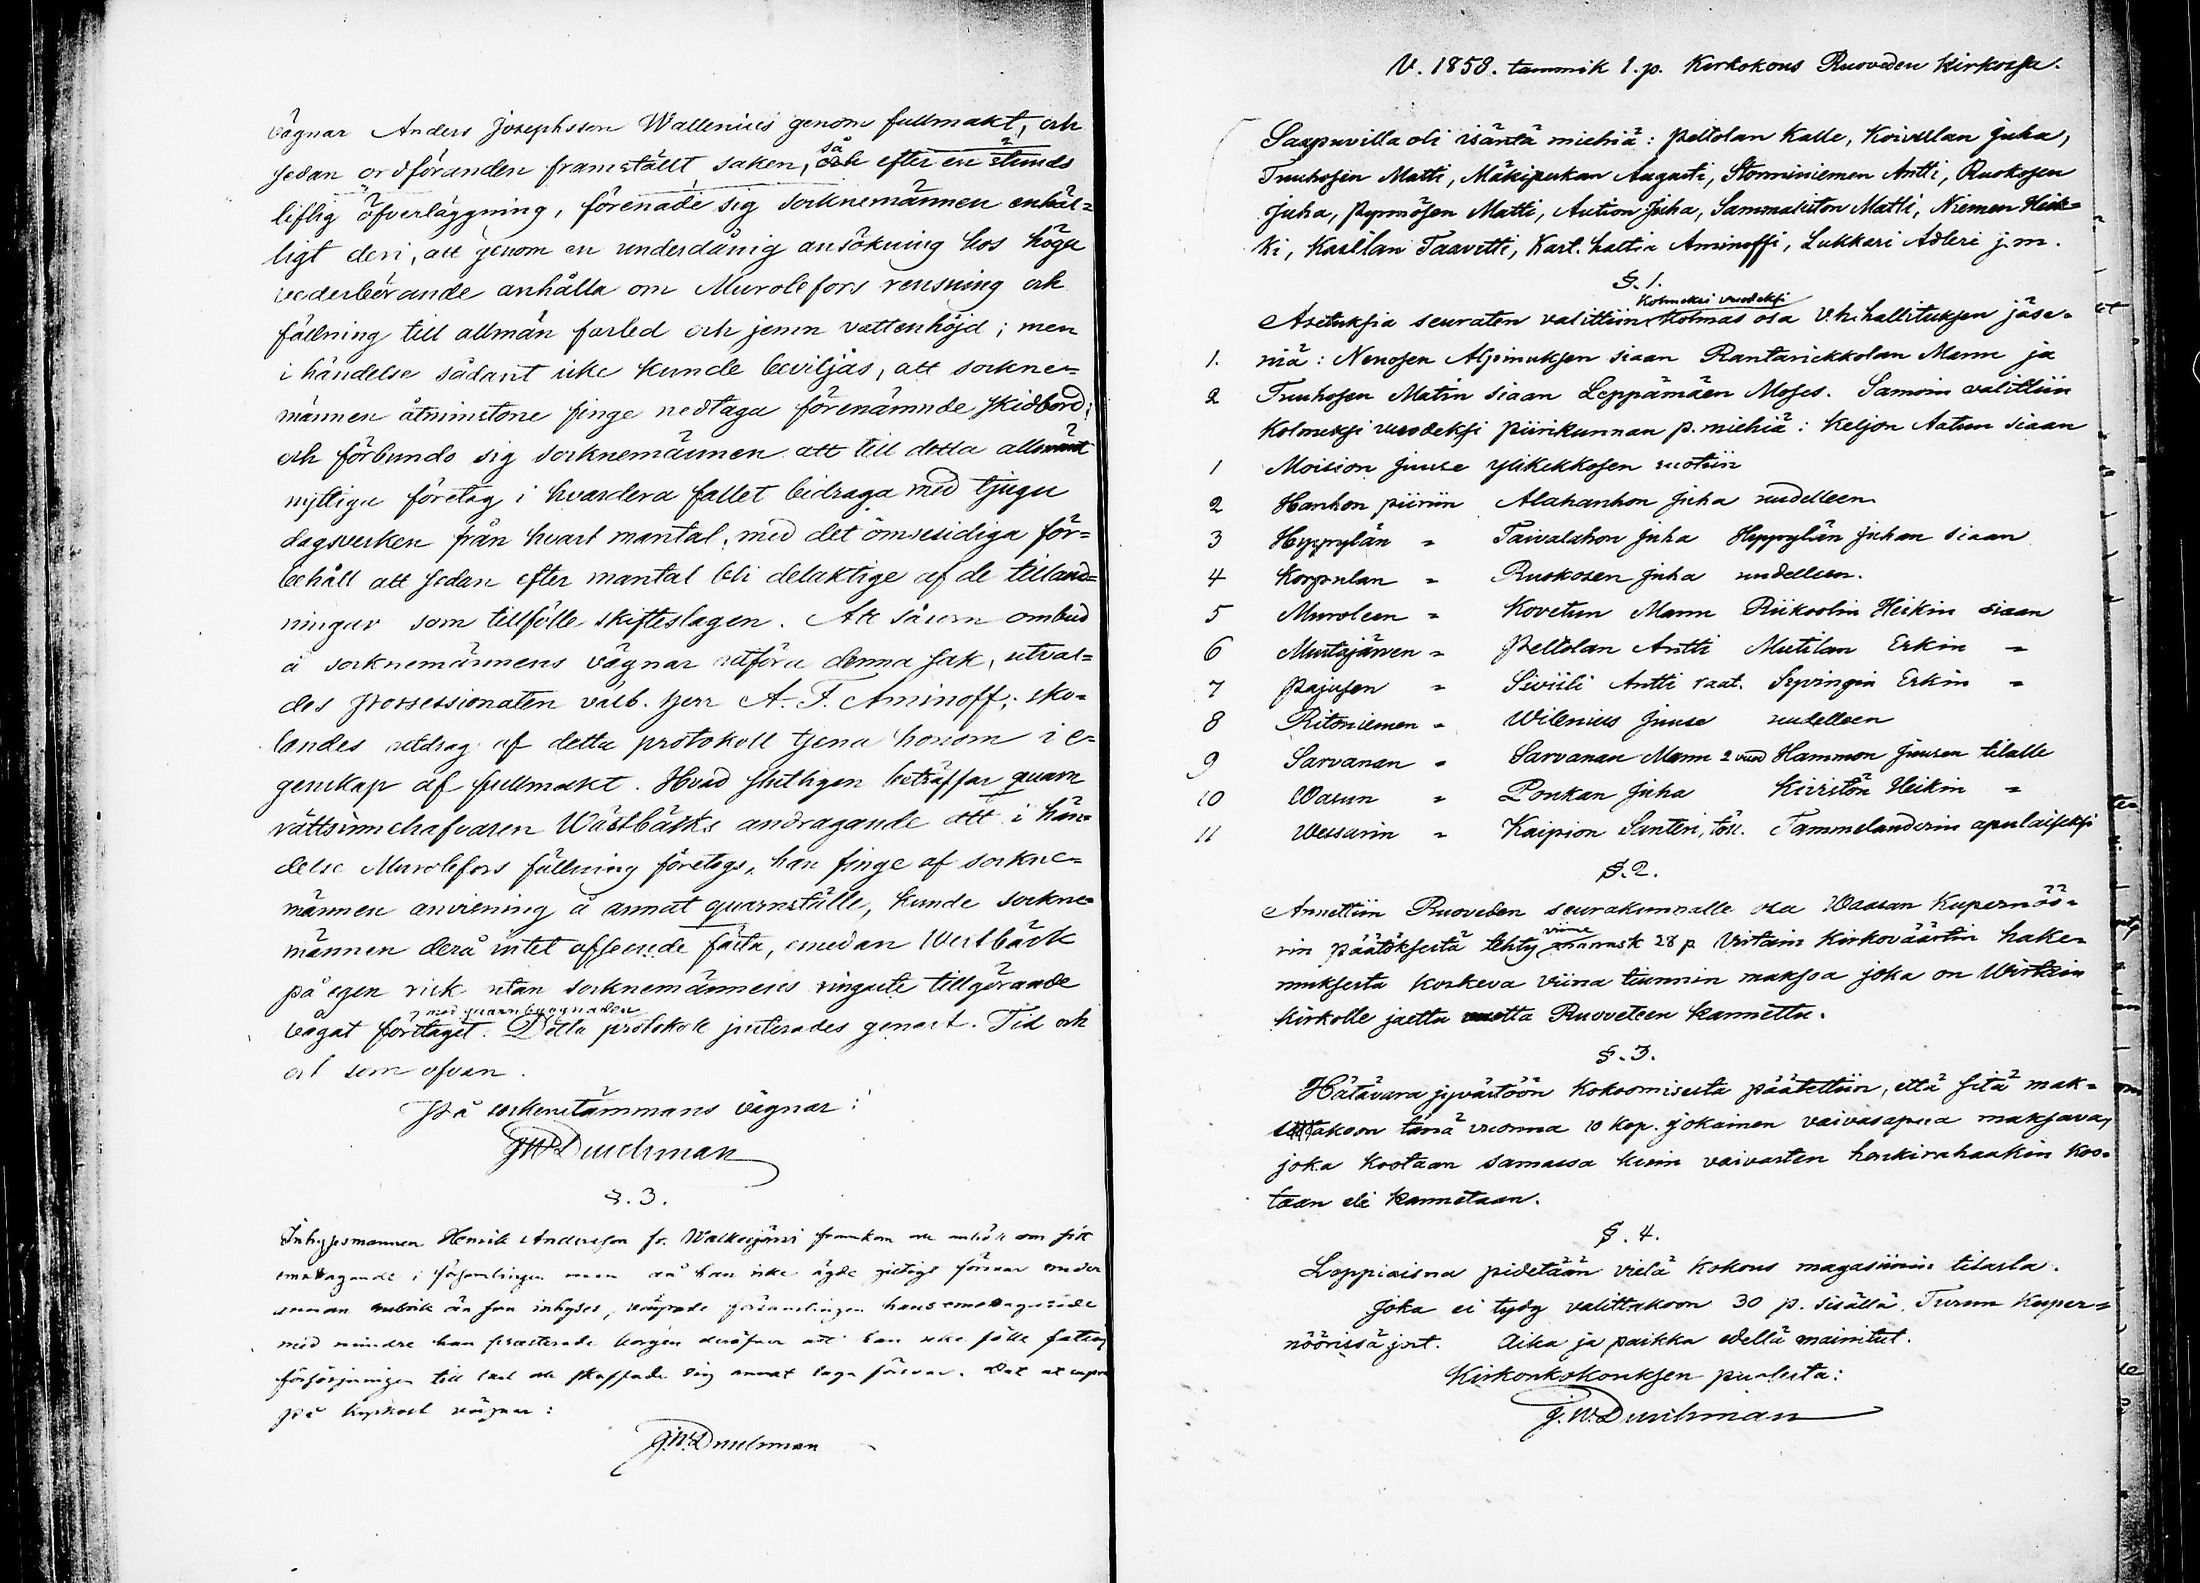 vägnar Anders Josephsson Wallenius genom fullmakt, och
sedan ordföranden framställt saken, så efter en stunds
liflig öfverläggning, förenade sig socknemännen enhäl=
ligt deri, att genom en underdånig ansökning hos höga
vederbörande anhålla om Murolefors rensning och
fällning till allmän farled och jemn vattenhöjd; men
i händelse sådant icke kunde beviljas, att sockne=
männen åtminstone finge nedtaga förenämnde skidbord;
och förbundo sig socknemännen att till detta allmänt
nyttiga företag i hvardera fallet bidraga med tjugu
dagsverken från hvart mantal, med det ömsesidiga för=
behåll att sedan efter mantal bli delaktige af de tilland=
ningar som tillfölle skifteslagen. Att såsom ombud
å socknemännens vägnar utföra denna sak, utval=
des possessionaten välb. herr A. F. Aminoff; sko=
landes utdrag af detta protokoll tjena honom i e=
genskap af fullmakt. Hvad slutligen beträffar quarn
rättsinnehafvaren Wästbäcks andragande att i hän=
delse Murolefors fällning företogs, han finge af sockne=
männen anvisning å annat quarnställe, kunde sockne=
männen derå intet afseende fästa, emedan Westbäck
på egen risk utan socknemännens ringaste tillgörande
med quarnbyggnaden
vågat företaget. Detta protokoll justerades genast. Tid och
ort som ofvan.
På sockenstämmans vägnar:
J W Durchman
§. 3.
Inhysesmannen Henrik Andersson fr. Walkeejärvi framkom och anhöll om sitt
emottagande i församlingen men då han icke ägde giltigt försvar under
annan rubrik än som inhyses, vägrade församlingen hans emottagande
med mindre han presterade borgen deröfver att han icke fölle fattig
försörjningen till last och skaffade sig annat laga försvar. Dat ut supra
På kyrkost vägnar:
J. W. Durchman
V. 1858. tammik 1. p. Kirkokous Ruoveden kirkossa.
Saapuvilla oli isäntä miehiä: Peltolan Kalle, Koivulan Juha,
Tuuhosen Matti, Mäkipurkan Augusti, Storminiemen Antti, Ruokosen
Juha, Pyrnösen Matti, Aution Juha, Sammaliston Matti, Niemen Heik=
ki, Kaarlan Taavitti, Kart. haltia Aminoffi, Lukkari Adleri j.m.
§. 1.
Kolmeksi vuodeksi
Asetuksia seuraten valittiin kolmas osa V.h. hallituksen jäse=
1. niä: Nenosen Alpinuksen siaan Rantariekkolan Mannu ja
2 Tuuhosen Matin siaan Leppämäen Moses. Samoin valittiin
kolmeksi vuodeksi piirikunnan p. miehiä: Keljon Aatun siaan
1 Moision Juuse Ylikekkosen ruotiin
2 Hanhon piiriin Alahanhon Juha uudelleen
3 Hyppylän " Taivalahon Juha Hyppylän Juhan siaan
4 Korpulan " Ruokosen Juha uudelleen.
5 Muroleen " Kovetun Mannu Riikoolin Heikin siaan
6 Mustajärven " Peltolan Antti Mutilan Erkin "
7 Pajusen " Siviili Antti raat. Srpringin Erkin "
8 Ritoniemen " Wilenius Juuse uudelleen
9 Sarvanan " Sarvanan Mannu 2 vuod Hammon Juusen tilalle
10 Wasun " Ponkan Juha Kivistön Heikin "
11 Wessarin " Kaipion Santeri, tör. Tammelanderin apulaiseksi
§. 2.
Annettiin Ruoveden seurakunnalle osa Waasan Kupernöö=
rin päätöksestä tehty viime marrask 28 p Virtain kirkoväärtin hake=
muksesta koskeva viina tiunnin maksoa joka on Wirtain
kirkolle jaettu mutta Ruoveteen kannettu.
§. 3.
Hätävara jyvästöön kokoomisesta päätettiin, että sitä mak=
settakoon tänä vuonna 10 kop. jokainen vaivasapua maksava,
joka kootaan samassa kuin vaivasten henkirahaakin koo=
taan eli kannetaan.
§. 4.
Loppiaisna pidetään vielä kokous magasiinin tilasta.
Joka ei tydy valittakoon 30 p. sisällä Turun kuper=
nöörissä jnt. Aika ja paikka edellä mainitut.
Kirkonkokouksen puolesta:
J. W. Durchman